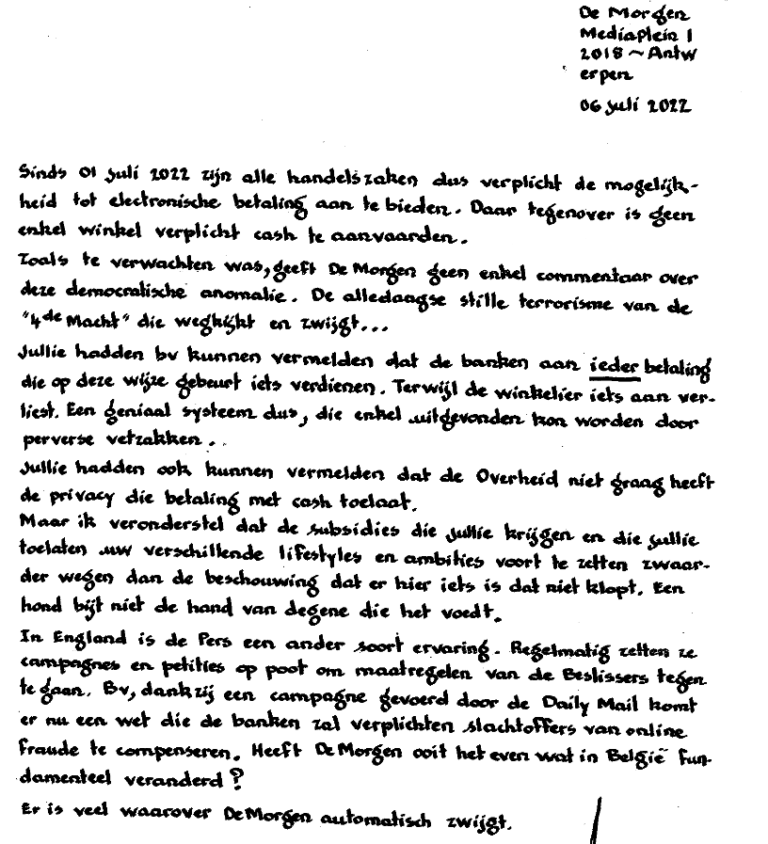 De Morgen
Mediaplein 1
2018 ~ Antw
erpen
06 juli 2022
Sinds 01 juli 2022 zijn alle handelszaken dus verplicht de mogelijk-
heid tot electronische betaling aan te bieden. Daar tegenover is geen
enkel winkel verplicht cash te aanvaarden.
Zoals te verwachten was, geeft De Morgen geen enkel commentaar over
deze democratische anomalie. De alledaagse stille terrorisme van de
"4de Macht" die wegkijkt en zwijgt...
Jullie hadden bv kunnen vermelden dat de banken aan ieder betaling
die op deze wijze gebeurt iets verdienen. Terwijl de winkelier iets aan ver-
liest. Een geniaal systeem dus, die enkel uitgevonden kon worden door
perverse vetzakken.
Jullie hadden ook kunnen vermelden dat de Overheid niet graag heeft
de privacy die betaling met cash toelaat.
Maar ik veronderstel dat de subsidies die jullie krijgen en die jullie
toelaten uw verschillende lifestyles en ambities voort te zetten zwaar-
der wegen dan de beschouwing dat er hier iets is dat niet klopt. Een
hond bijt niet de hand van degene die het voedt.
In England is de Pers een ander soort ervaring. Regelmatig zetten ze
campagnes en petities op poot om maatregelen van de Beslissers tegen
te gaan. Bv, dankzij een campagne gevoerd door de Daily Mail komt
er nu een wet die de banken zal verplichten slachtoffers van online
fraude te compenseren. Heeft De Morgen ooit het even wat in België fun-
damenteel veranderd?
Er is veel waarover De Morgen automatisch zwijgt.